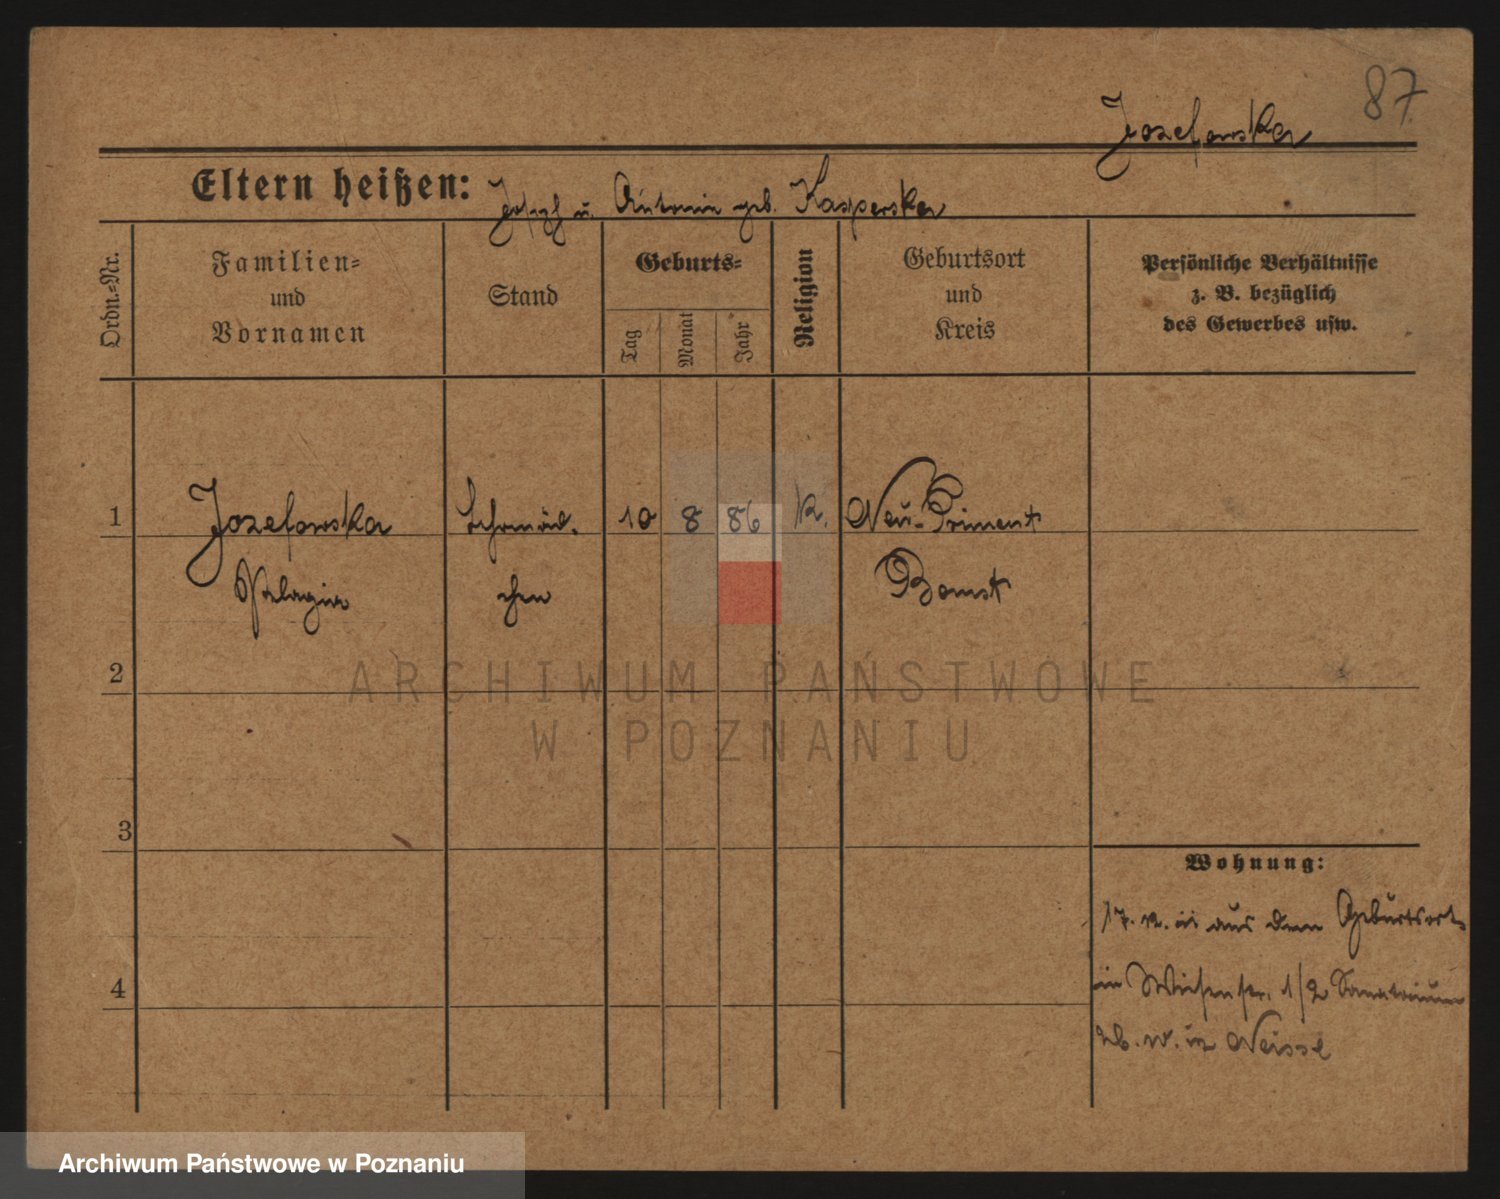 87
Jozefowska
Eltern heißen: Joseph u. Antonie geb. Kasperska
Ordn.-Nr.
Familien-
und
Vornamen
Stand
Geburts-
Tag
Monat
Jahr
Religion
Geburtsort
und
Kreis
Persönliche Verhältnisse
z. B. bezüglich
des Gewerbes usw.
1 Jozefowska 10 8 86 K. Neu-Priment
Pelagia chen Bomst
2
3
4
Wohnung:
aus dem Geburtsort
in Wiesenstr. 1/2 Sanatorium
26. in Neisse
ARCHIWUM PAŃSTWOWE
W POZNANIU
Archiwum Państwowe w Poznaniu